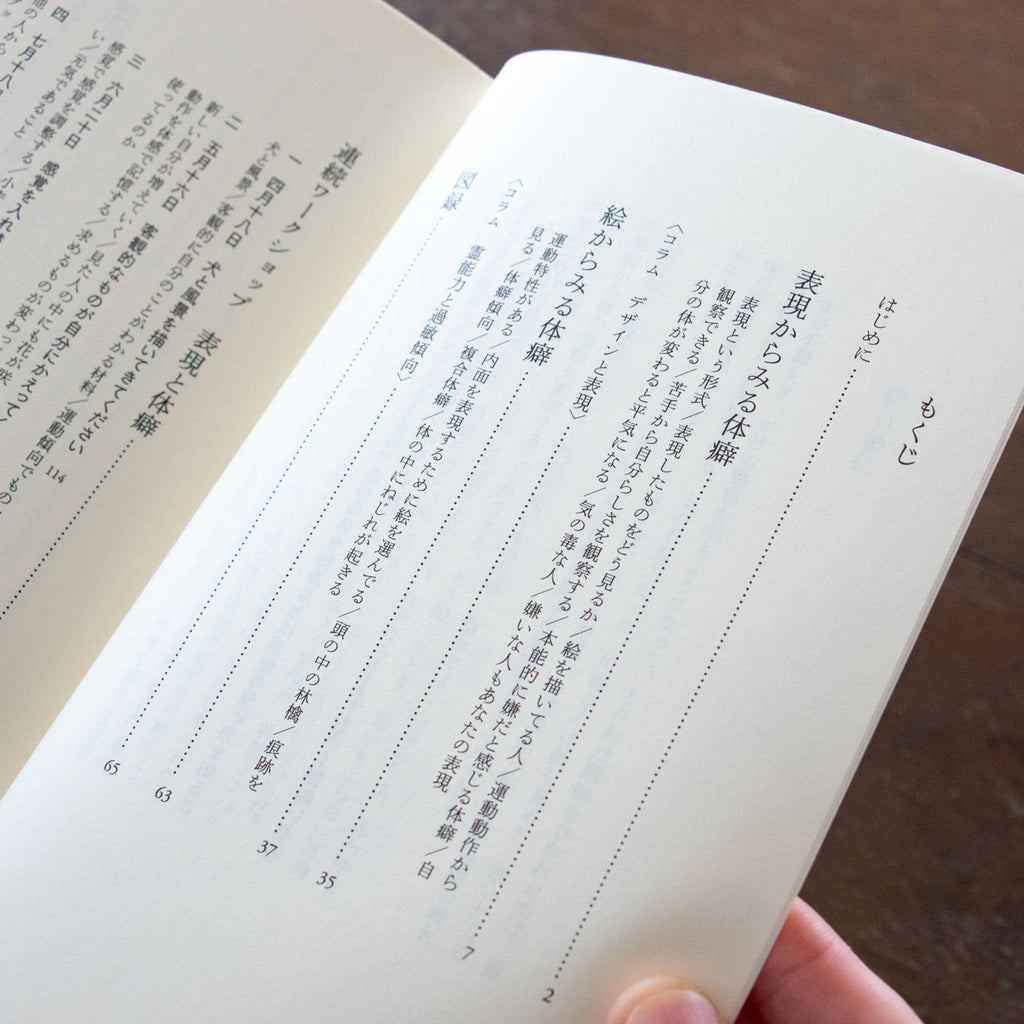 もくじ
はじめに 2
表現からみる体癖 7
表現という形式／表現したものをどう見るか／絵を描いてる人／運動動作から
観察できる／苦手から自分らしさを観察する／本能的に嫌だと感じる体癖／自
分の体が変わると平気になる／気の毒な人／嫌いな人もあなたの表現
〈コラム　デザインと表現〉 35
絵からみる体癖 37
運動特性がある／内面を表現するために絵を選んでる／頭の中の林檎／痕跡を
見る／体癖傾向／複合体癖／体の中にねじれが起きる
〈コラム　霊能力と過敏傾向〉 63
図録 65
連続ワークショップ　表現と体癖 114
一　四月十八日　犬と風景を描いてきてください
犬と風景／客観的に自分のことがわかる材料／運動傾向でもの
二　五月十六日　客観的なものが自分にかえって
新しい自分が増えていく／見た人の中にも花が咲
動作を体感で記憶する／求めるものが変わっ
使ってるのか
三　六月二十日　感覚を入れ
感覚で感覚を調整する／小
い／元気であること
四　七月十八
他の人から